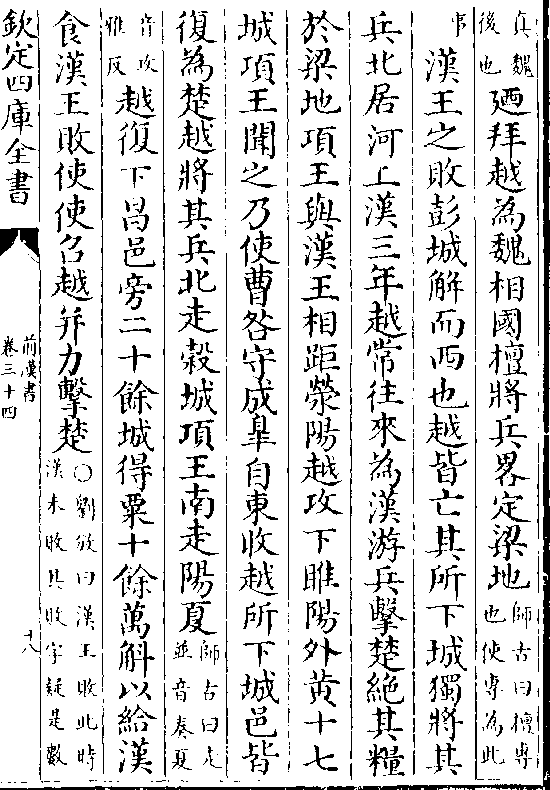 真魏
後也廼拜越為魏相國擅將兵畧定梁地師古曰擅専
也使専為此
事漢王之敗彭城解而西也越皆亡其所下城獨將其
兵北居河上漢三年越常往來為漢游兵擊楚絶其糧
於梁地項王與漢王相距滎陽越攻下睢陽外黄十七
城項王聞之乃使曹咎守成臯自東收越所下城邑皆
復為楚越將其兵北走榖城項王南走陽夏師古曰走
並音奏夏
音攻
雅反越復下昌邑旁二十餘城得粟十餘萬斛以給漢
食漢王敗使使召越并力擊楚○劉攽曰漢王敗此時
漢未敗其敗字疑是數
欽定四庫全書
前漢書
卷三十四
十八